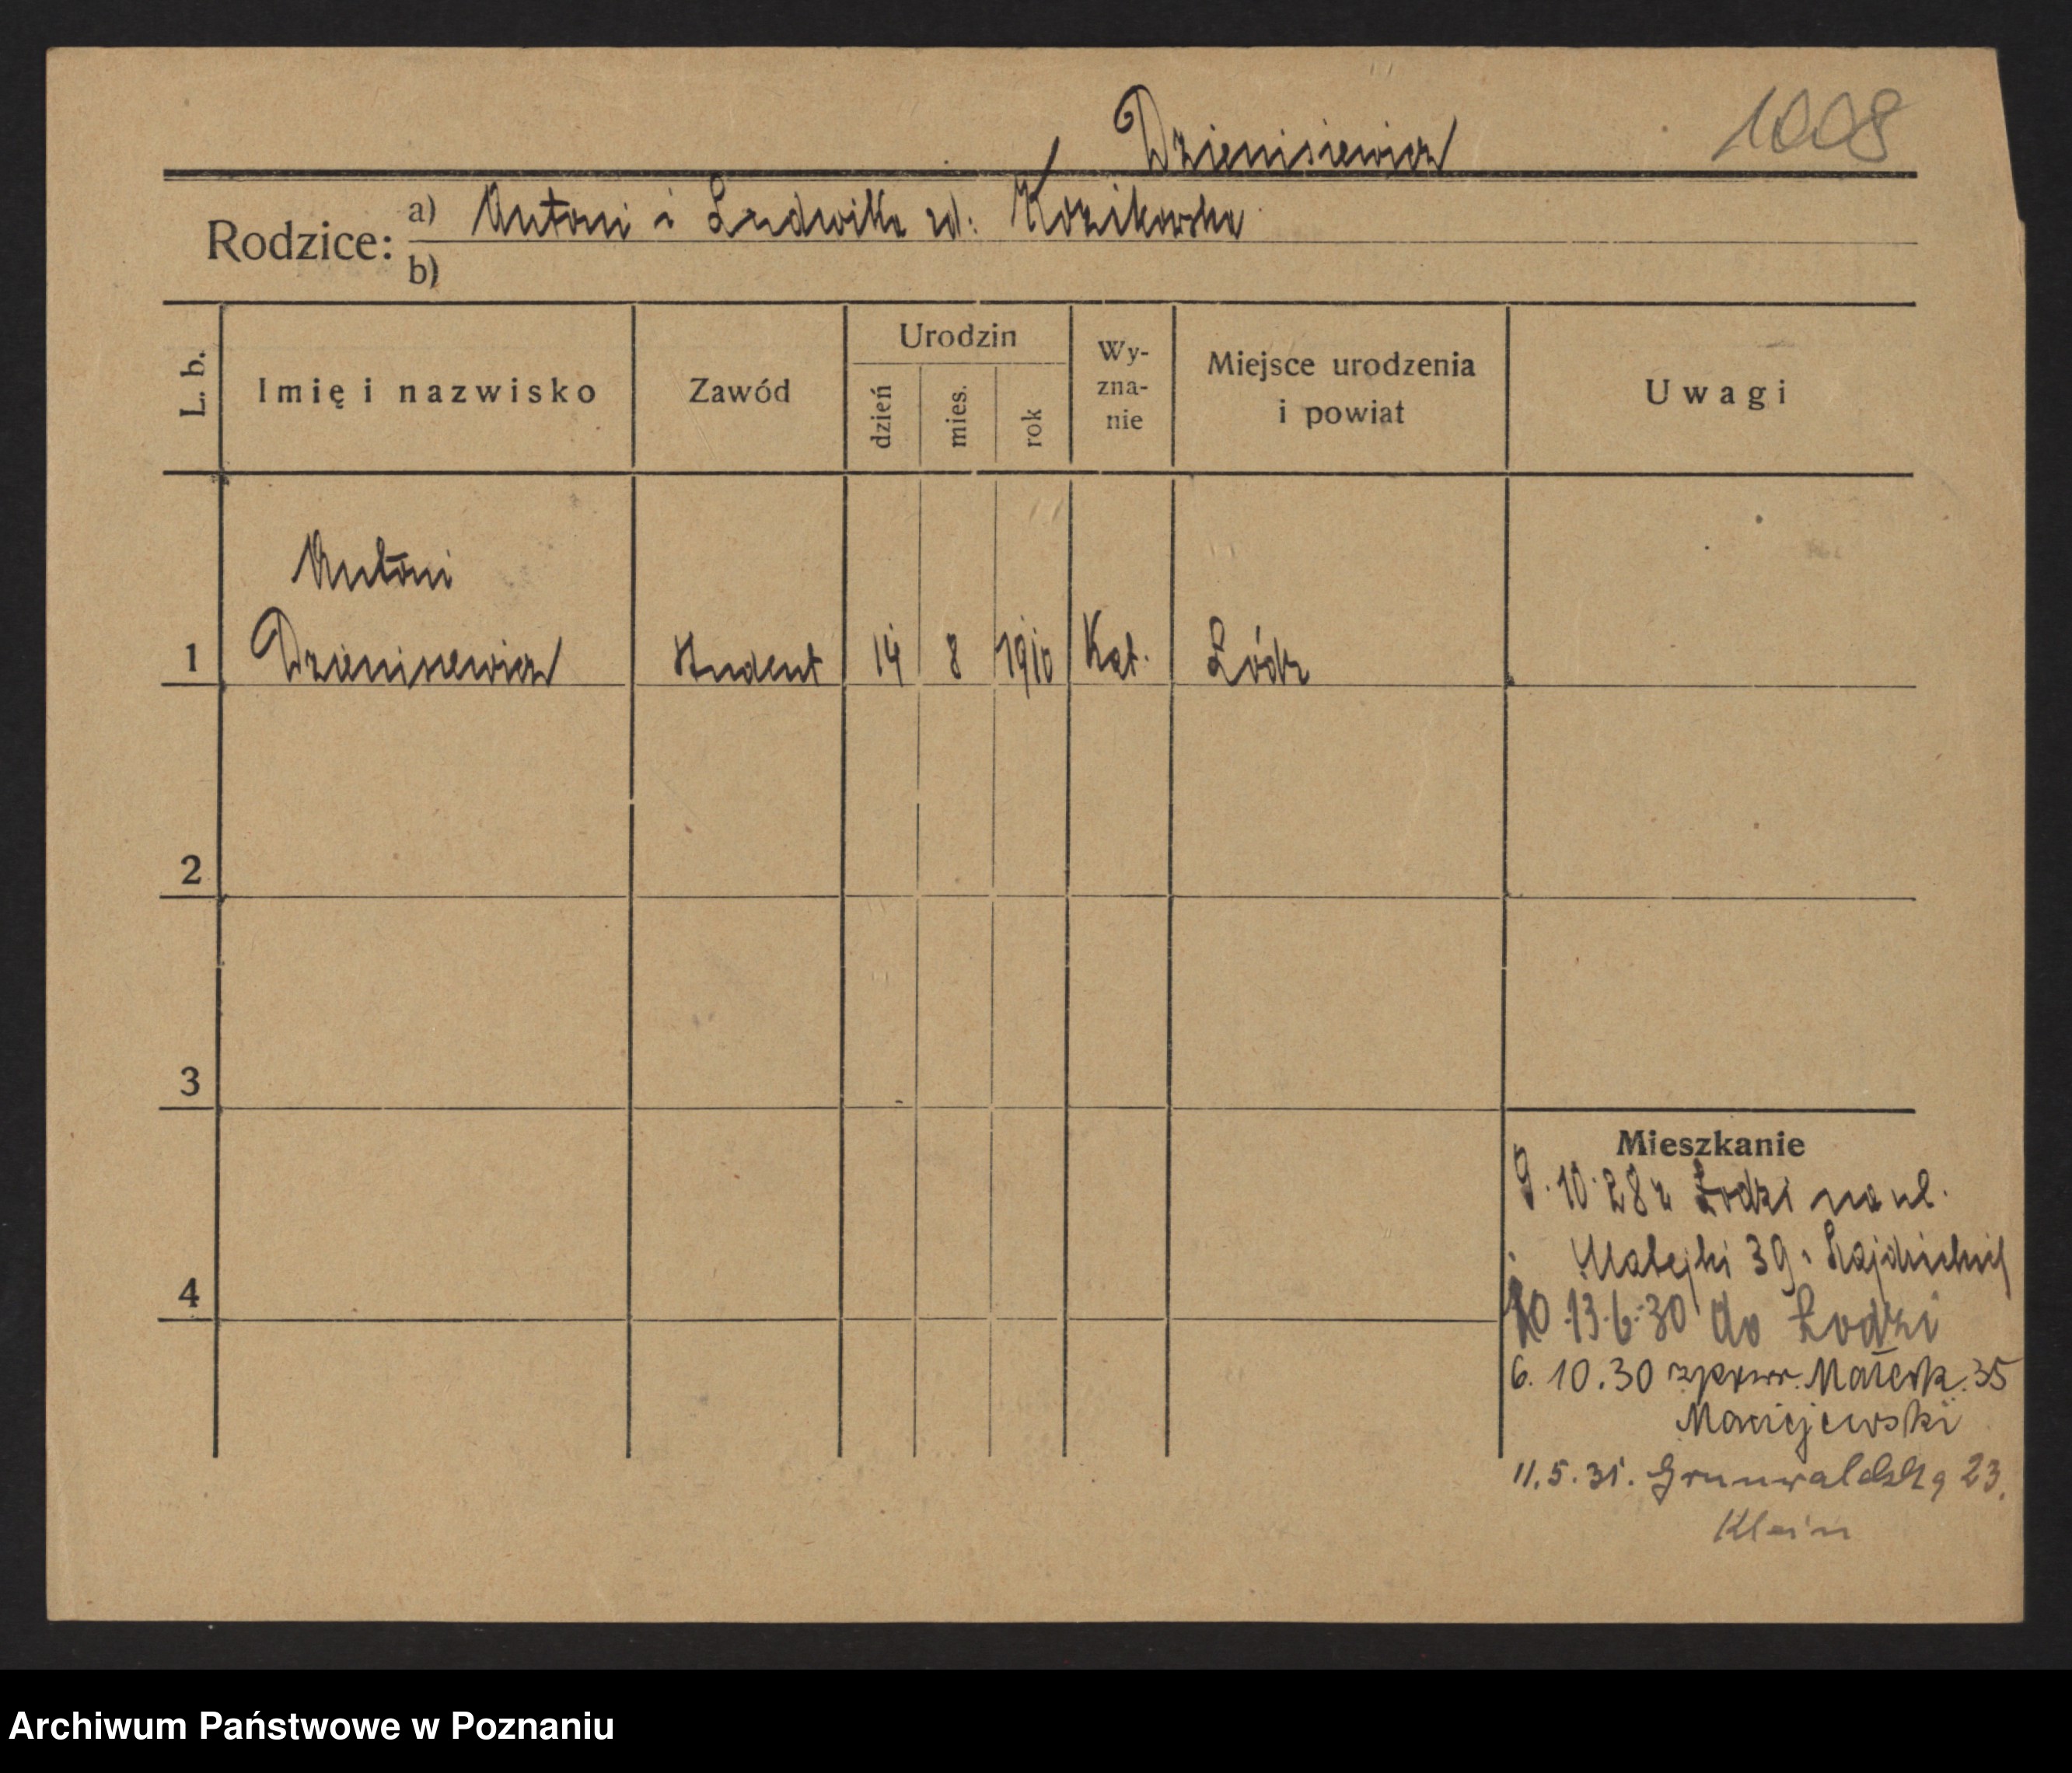 Dzienisiewicz 1008
Rodzice: a) Antoni i Ludwika zd. Kozikowska
b)
L. b. Imię i nazwisko Zawód Urodzin dzień mies. rok Wy-zna-nie Miejsce urodzenia i powiat Uwagi
Antoni
1 Dzienisiewicz Student 14 8 1910 Kat. Łódz
2
3
Mieszkanie
9.10.28 z Łodzi na ul.
Matejki 39
4
13.6.30 do Łodzi
6.10.30 35
Maciejewski
11.5.31. Grunwaldzka 23.
Klein
Archiwum Państwowe w Poznaniu